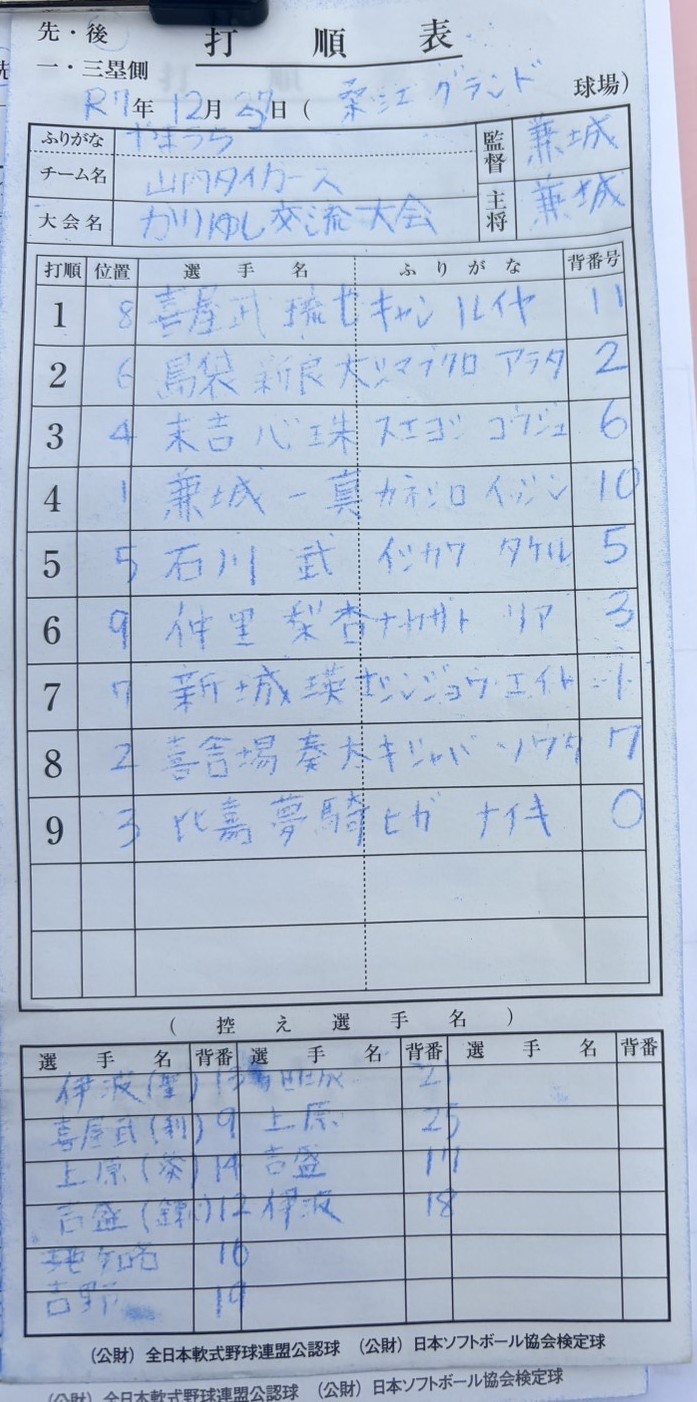 先・後 打順表
一・三塁側
R7年 12月 27日 ( 桑江グランド 球場)
ふりがな やまうち 監督 兼城
チーム名 山内タイガース 主将 兼城
大会名 かりゆし交流大会
打順 位置 選手名 ふりがな 背番号
1 8 喜屋武 琉 キャン ルイヤ 11
2 6 島袋 新良大 シマブクロ アラタ 2
3 4 末吉 心珠 スエヨシ コウジュ 6
4 1 兼城 一真 カネシロ イッシン 10
5 5 石川 武 イシカワ タケル 5
6 9 仲里 梨杏 ナカザト リア 3
7 7 新城 瑛 シンジョウ エイト 1
8 2 喜舎場 奏太 キシャバ ソウタ 7
9 3 比嘉 夢騎 ヒガ ナイキ 0
(控え選手名)
選手名 背番 選手名 背番 選手名 背番
伊波 13 21
喜屋武(利) 9 上原 25
上原(葵) 14 吉盛 17
吉盛 12 伊波 18
16
吉野 19
(公財) 全日本軟式野球連盟公認球 (公財) 日本ソフトボール協会検定球
(公財) 全日本軟式野球連盟公認球 (公財) 日本ソフトボール協会検定球